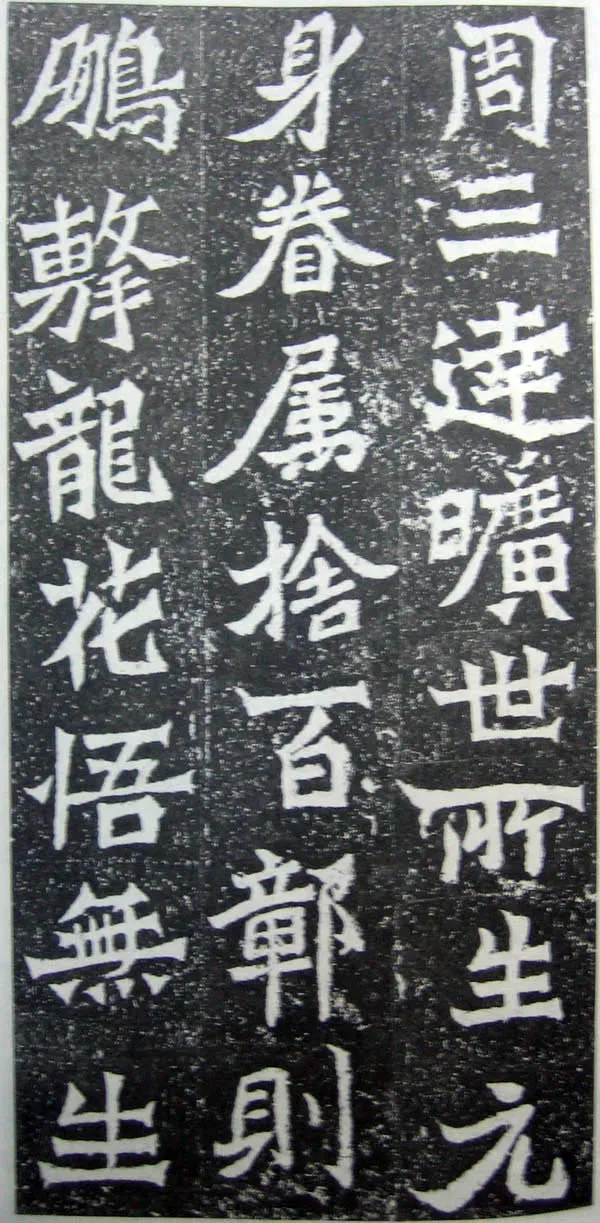 周三達曠世所生元
身眷属捨百鄣則
鵬擊龍花悟無生